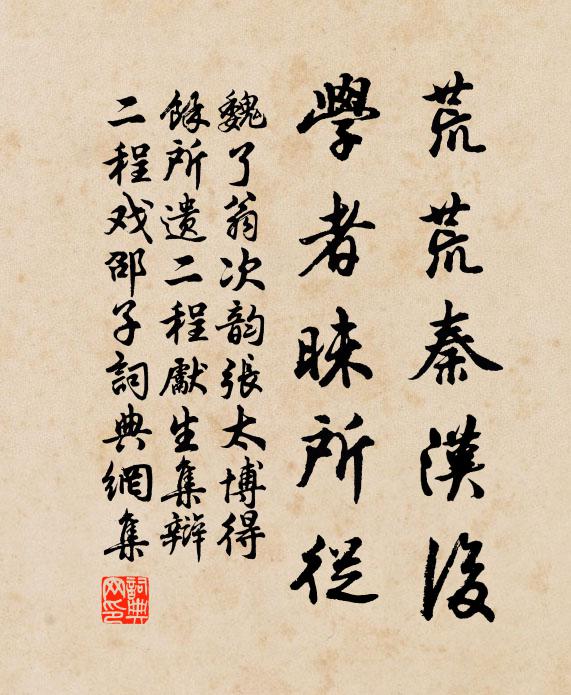 荒荒秦漢後
學者昧所從
魏了翁次韵張太博得
餘所遺二程獻生集辯
二程戏邵子詞典網集
詞典網印